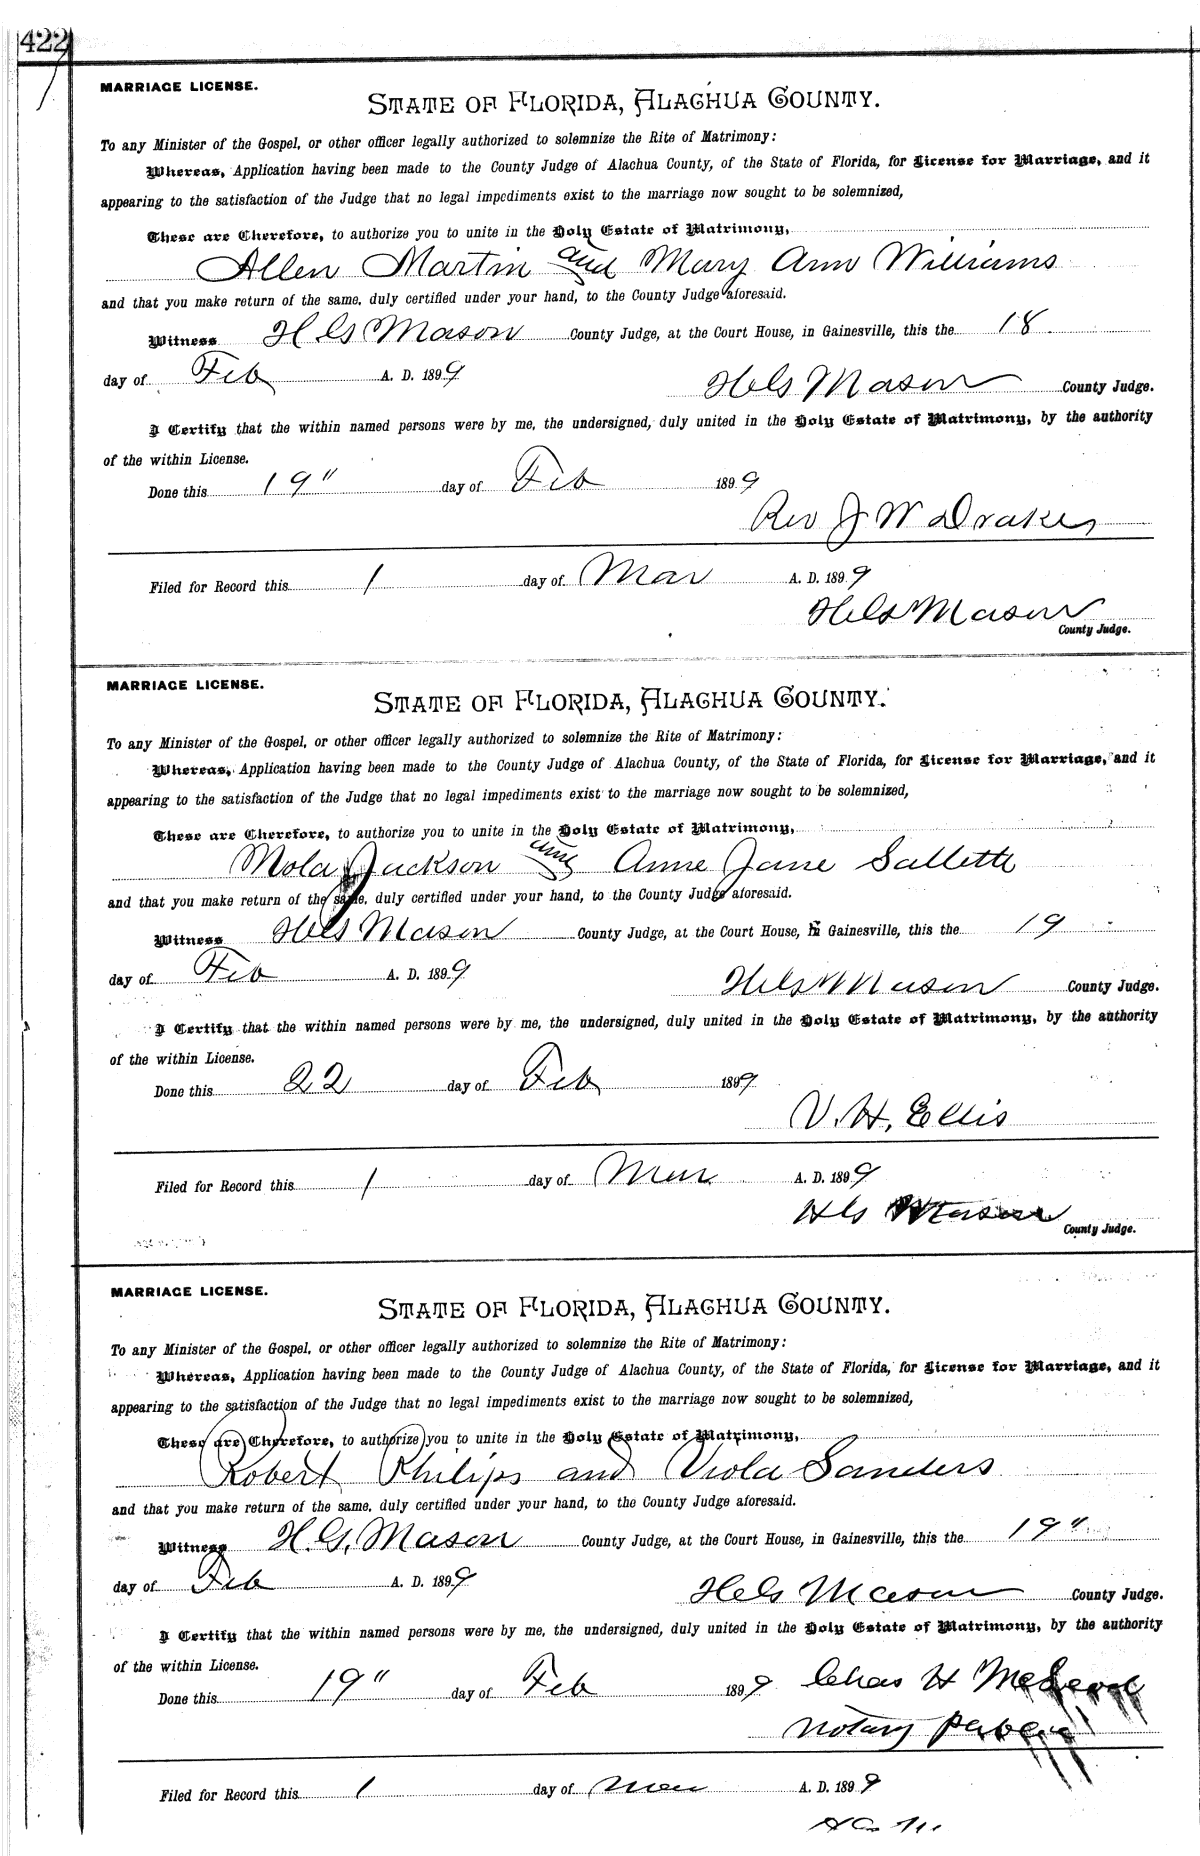 422
MARRIAGE LICENSE.
STATE OF FLORIDA, ALACHUA COUNTY.
To any Minister of the Gospel, or other officer legally authorized to solemnize the Rite of Matrimony:
Whereas, Application having been made to the County Judge of Alachua County, of the State of Florida, for License for Marriage, and it
appearing to the satisfaction of the Judge that no legal impediments exist to the marriage now sought to be solemnized,
These are Therefore, to authorize you to unite in the Holy Estate of Matrimony,
Allen Martin and Mary Ann Williams
and that you make return of the same, duly certified under your hand, to the County Judge aforesaid.
Witness H G Mason County Judge, at the Court House, in Gainesville, this the 18
day of Feb A. D. 1899 H G Mason County Judge.
I Certify that the within named persons were by me, the undersigned, duly united in the Holy Estate of Matrimony, by the authority
of the within License.
Done this 19" day of Feb 1899
Rev J W Drakes
Filed for Record this 1 day of Mar A. D. 1899
H G Mason
County Judge.
MARRIAGE LICENSE.
STATE OF FLORIDA, ALACHUA COUNTY.
To any Minister of the Gospel, or other officer legally authorized to solemnize the Rite of Matrimony:
Whereas, Application having been made to the County Judge of Alachua County, of the State of Florida, for License for Marriage, and it
appearing to the satisfaction of the Judge that no legal impediments exist to the marriage now sought to be solemnized,
These are Therefore, to authorize you to unite in the Holy Estate of Matrimony,
Mola Jackson and Anne Jane Salletté
and that you make return of the same, duly certified under your hand, to the County Judge aforesaid.
Witness H G Mason County Judge, at the Court House, in Gainesville, this the 19
day of Feb A. D. 1899 H G Mason County Judge.
I Certify that the within named persons were by me, the undersigned, duly united in the Holy Estate of Matrimony, by the authority
of the within License.
Done this 22 day of Feb 1899
V. H. Ellis
Filed for Record this 1 day of Mar A. D. 1899
H G Mason
County Judge.
MARRIAGE LICENSE.
STATE OF FLORIDA, ALACHUA COUNTY.
To any Minister of the Gospel, or other officer legally authorized to solemnize the Rite of Matrimony:
Whereas, Application having been made to the County Judge of Alachua County, of the State of Florida, for License for Marriage, and it
appearing to the satisfaction of the Judge that no legal impediments exist to the marriage now sought to be solemnized,
These are Therefore, to authorize you to unite in the Holy Estate of Matrimony,
Robert Philips and Viola Sanders
and that you make return of the same, duly certified under your hand, to the County Judge aforesaid.
Witness H. G. Mason County Judge, at the Court House, in Gainesville, this the 19"
day of Feb A. D. 1899 H G Mason County Judge.
I Certify that the within named persons were by me, the undersigned, duly united in the Holy Estate of Matrimony, by the authority
of the within License.
Done this 19" day of Feb 1899 Chas H McLeod
Notary Public
Filed for Record this 1 day of Mar A. D. 1899